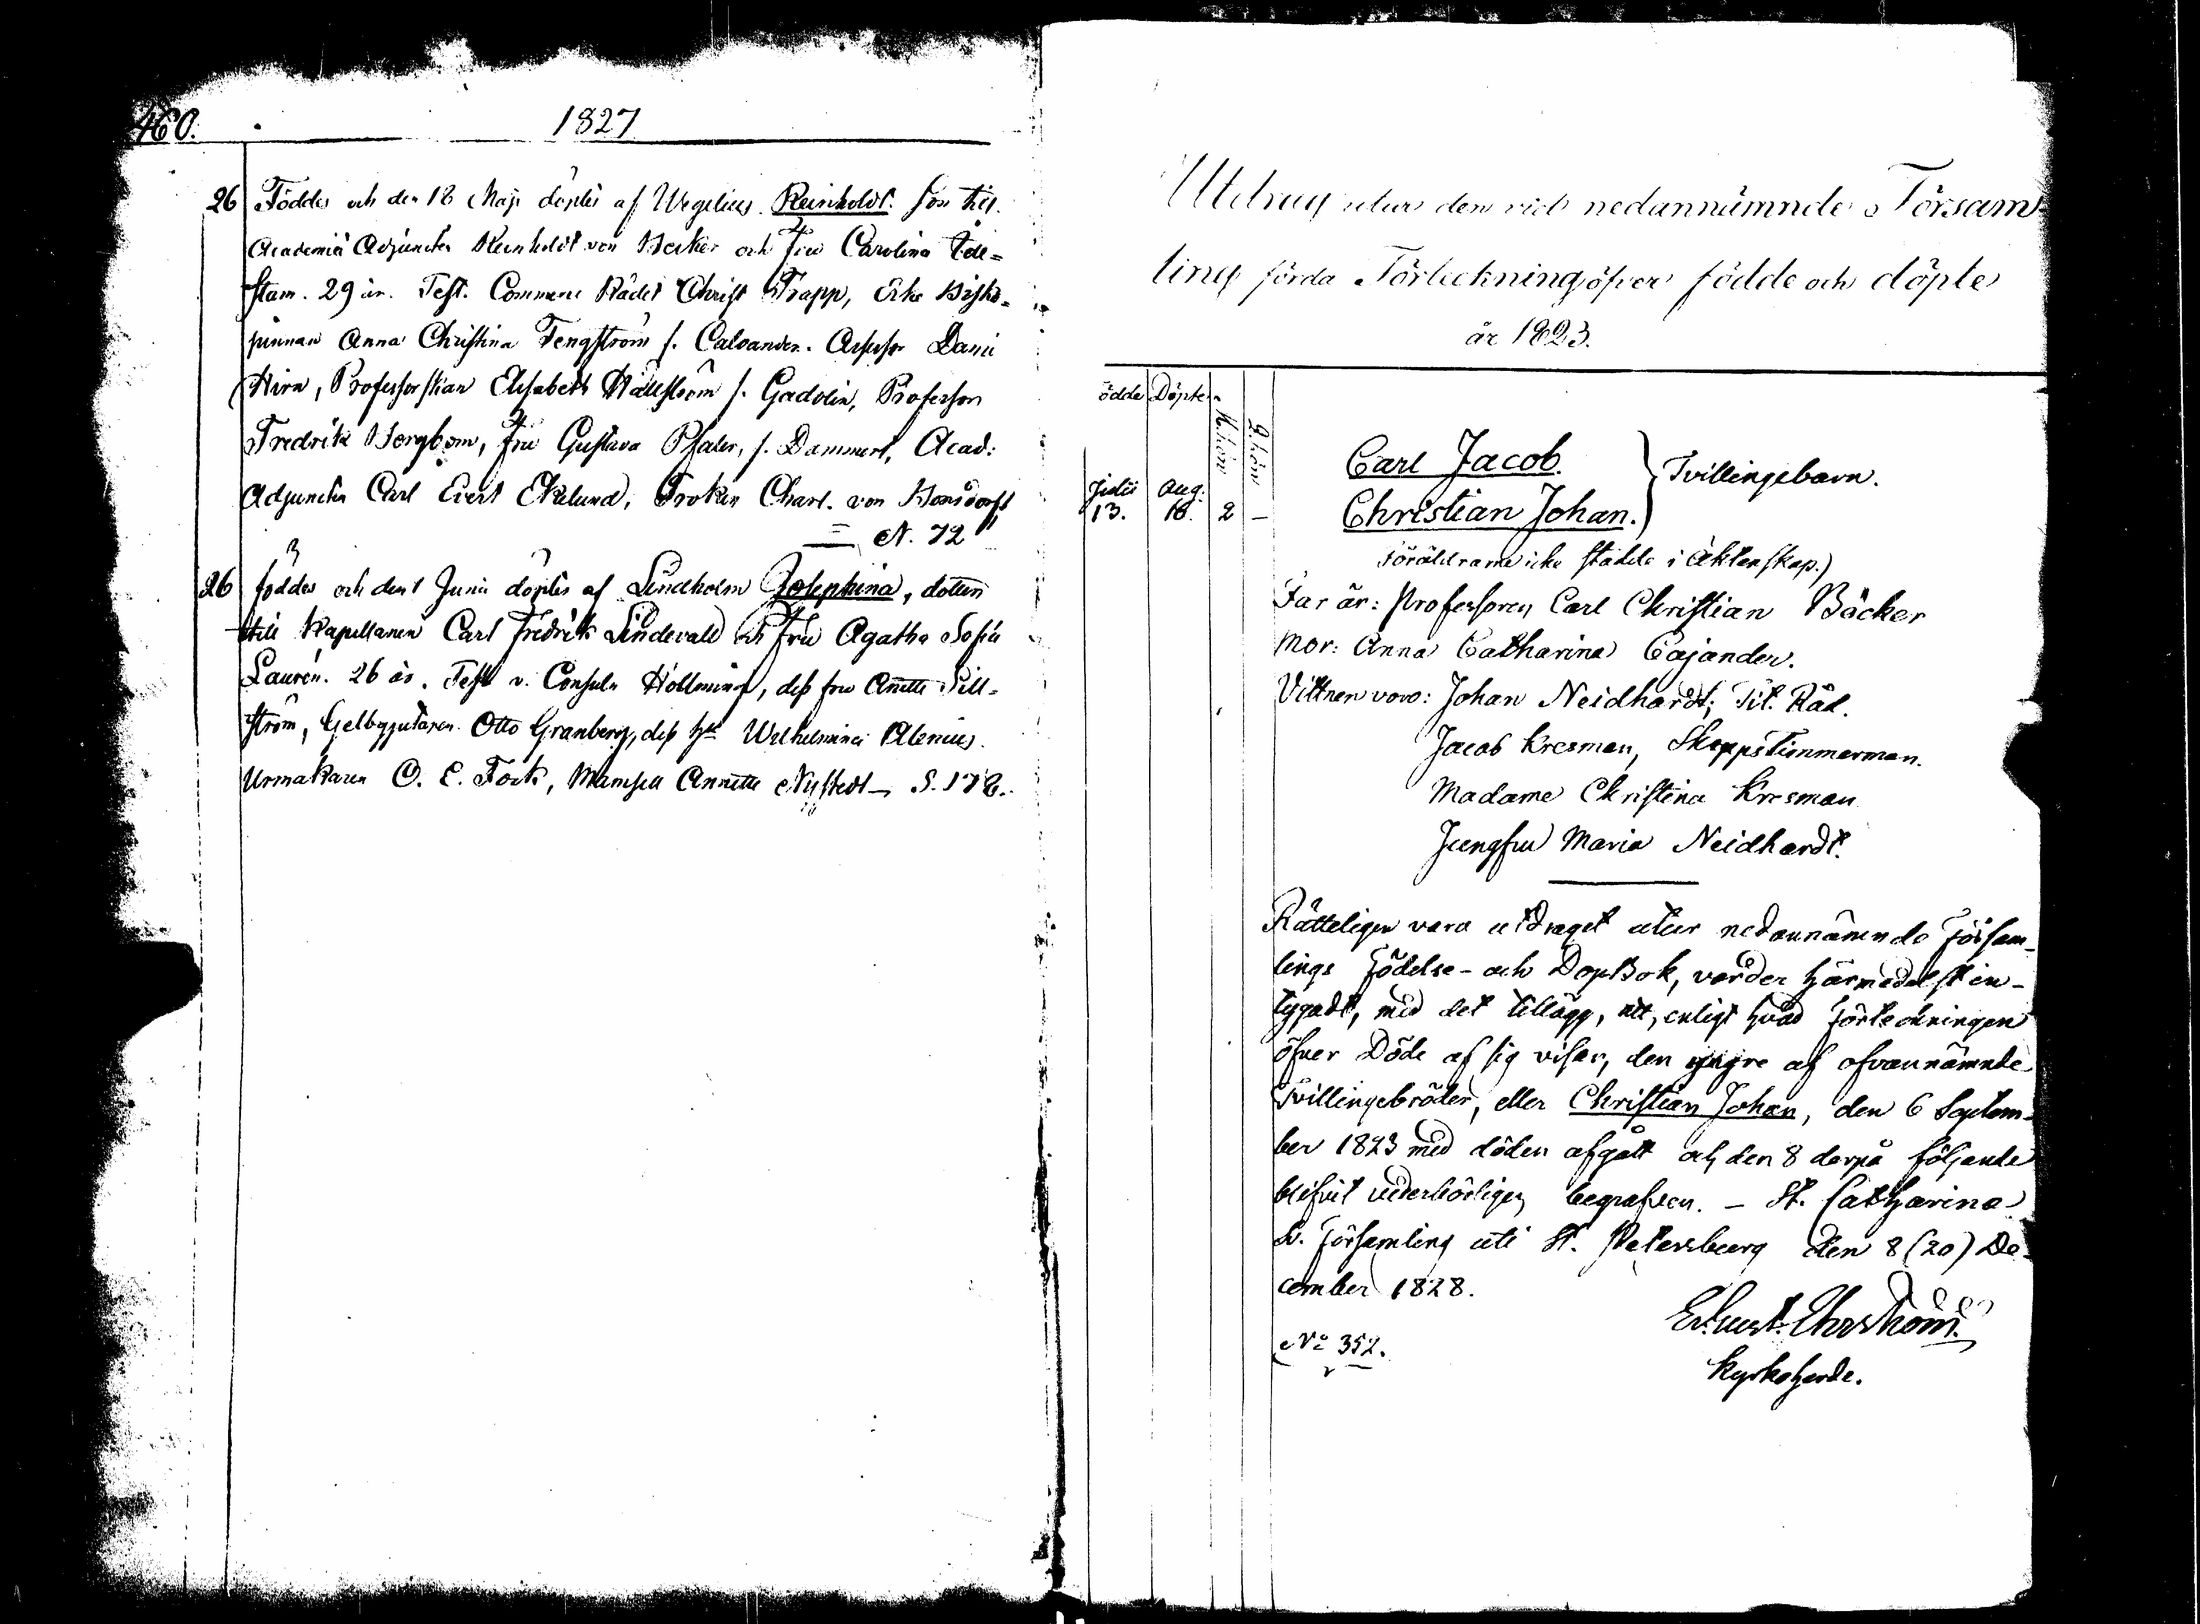 460.
1827
26 Föddes och den 18 Maji döptes af Wegelius Reinholdt son till
Academiæ Adjuncten Reinholdt von Becker och Fru Carolina Ede=
stam. 29 år. Test. Commerce Rådet Christ Trapp, Erke Bisko=
pinnan Anna Christina Tengström f. Caloander. Assessor Daniel
Hirn, Professorskan Elisabeth Hällström f. Gadolin, Professor
Fredrik Bergbom, Fru Gustava Pfaler, f. Dammert, Acad:
Adjuncten Carl Evert Ekelund, Fröken Charl. von Bonsdorff
N. 72
26 föddes och den 1 Junii döptes af Lindholm Josephina, dotter
till Kapellanen Carl Fredrik Lindevall och Fru Agatha Sofia
Laurén. 26 år. Test v. Consuln Höllming, dess fru Anette Sill=
ström, Gelbgjutaren Otto Granberg, dess hu Wilhelmina Alenius.
Urmakaren C. E. Fock, Mamsell Annette Nystedt – S. 178.
Utdrag utur den vid nedannämnde Församl=
ling förda Förteckning öfver födde och döpte
år 1823.
ödde Döpte M.kön Q.kön
Julii Aug.
13. 18. 2 –
Carl Jacob.
Christian Johan.
Tvillingebarn.
Föräldrarne icke stadde i äktenskap.)
Far är: Professoren Carl Christian Bäcker
Mor: Anna Catharina Cajander.
Vittnen voro: Johan Neidhardt, Tit. Råd.
Jacob Kresman, Skeppstimmerman.
Madame Christina Kresman
Jungfru Maria Neidhardt.
Rätteligen vara utdraget utur nedannämnde Försam=
lings Födelse- och DopBok, varder härmedelst in-
tygadt, med det tillägg, att, enligt hvad Förteckningen
öfver Döde af sig visar, den yngre af ofvannämnde
Tvillingebröder, eller Christian Johan, den 6 Septem=
ber 1823 med döden afgått och den 8 derpå följande
blifvit vederbörligen begrafven. – St. Catharina
Sv. Församling uti St. Petersburg den 8 (20) De=
cember 1828.
No 352.
Ernst Ehrström.
Kyrkoherde.